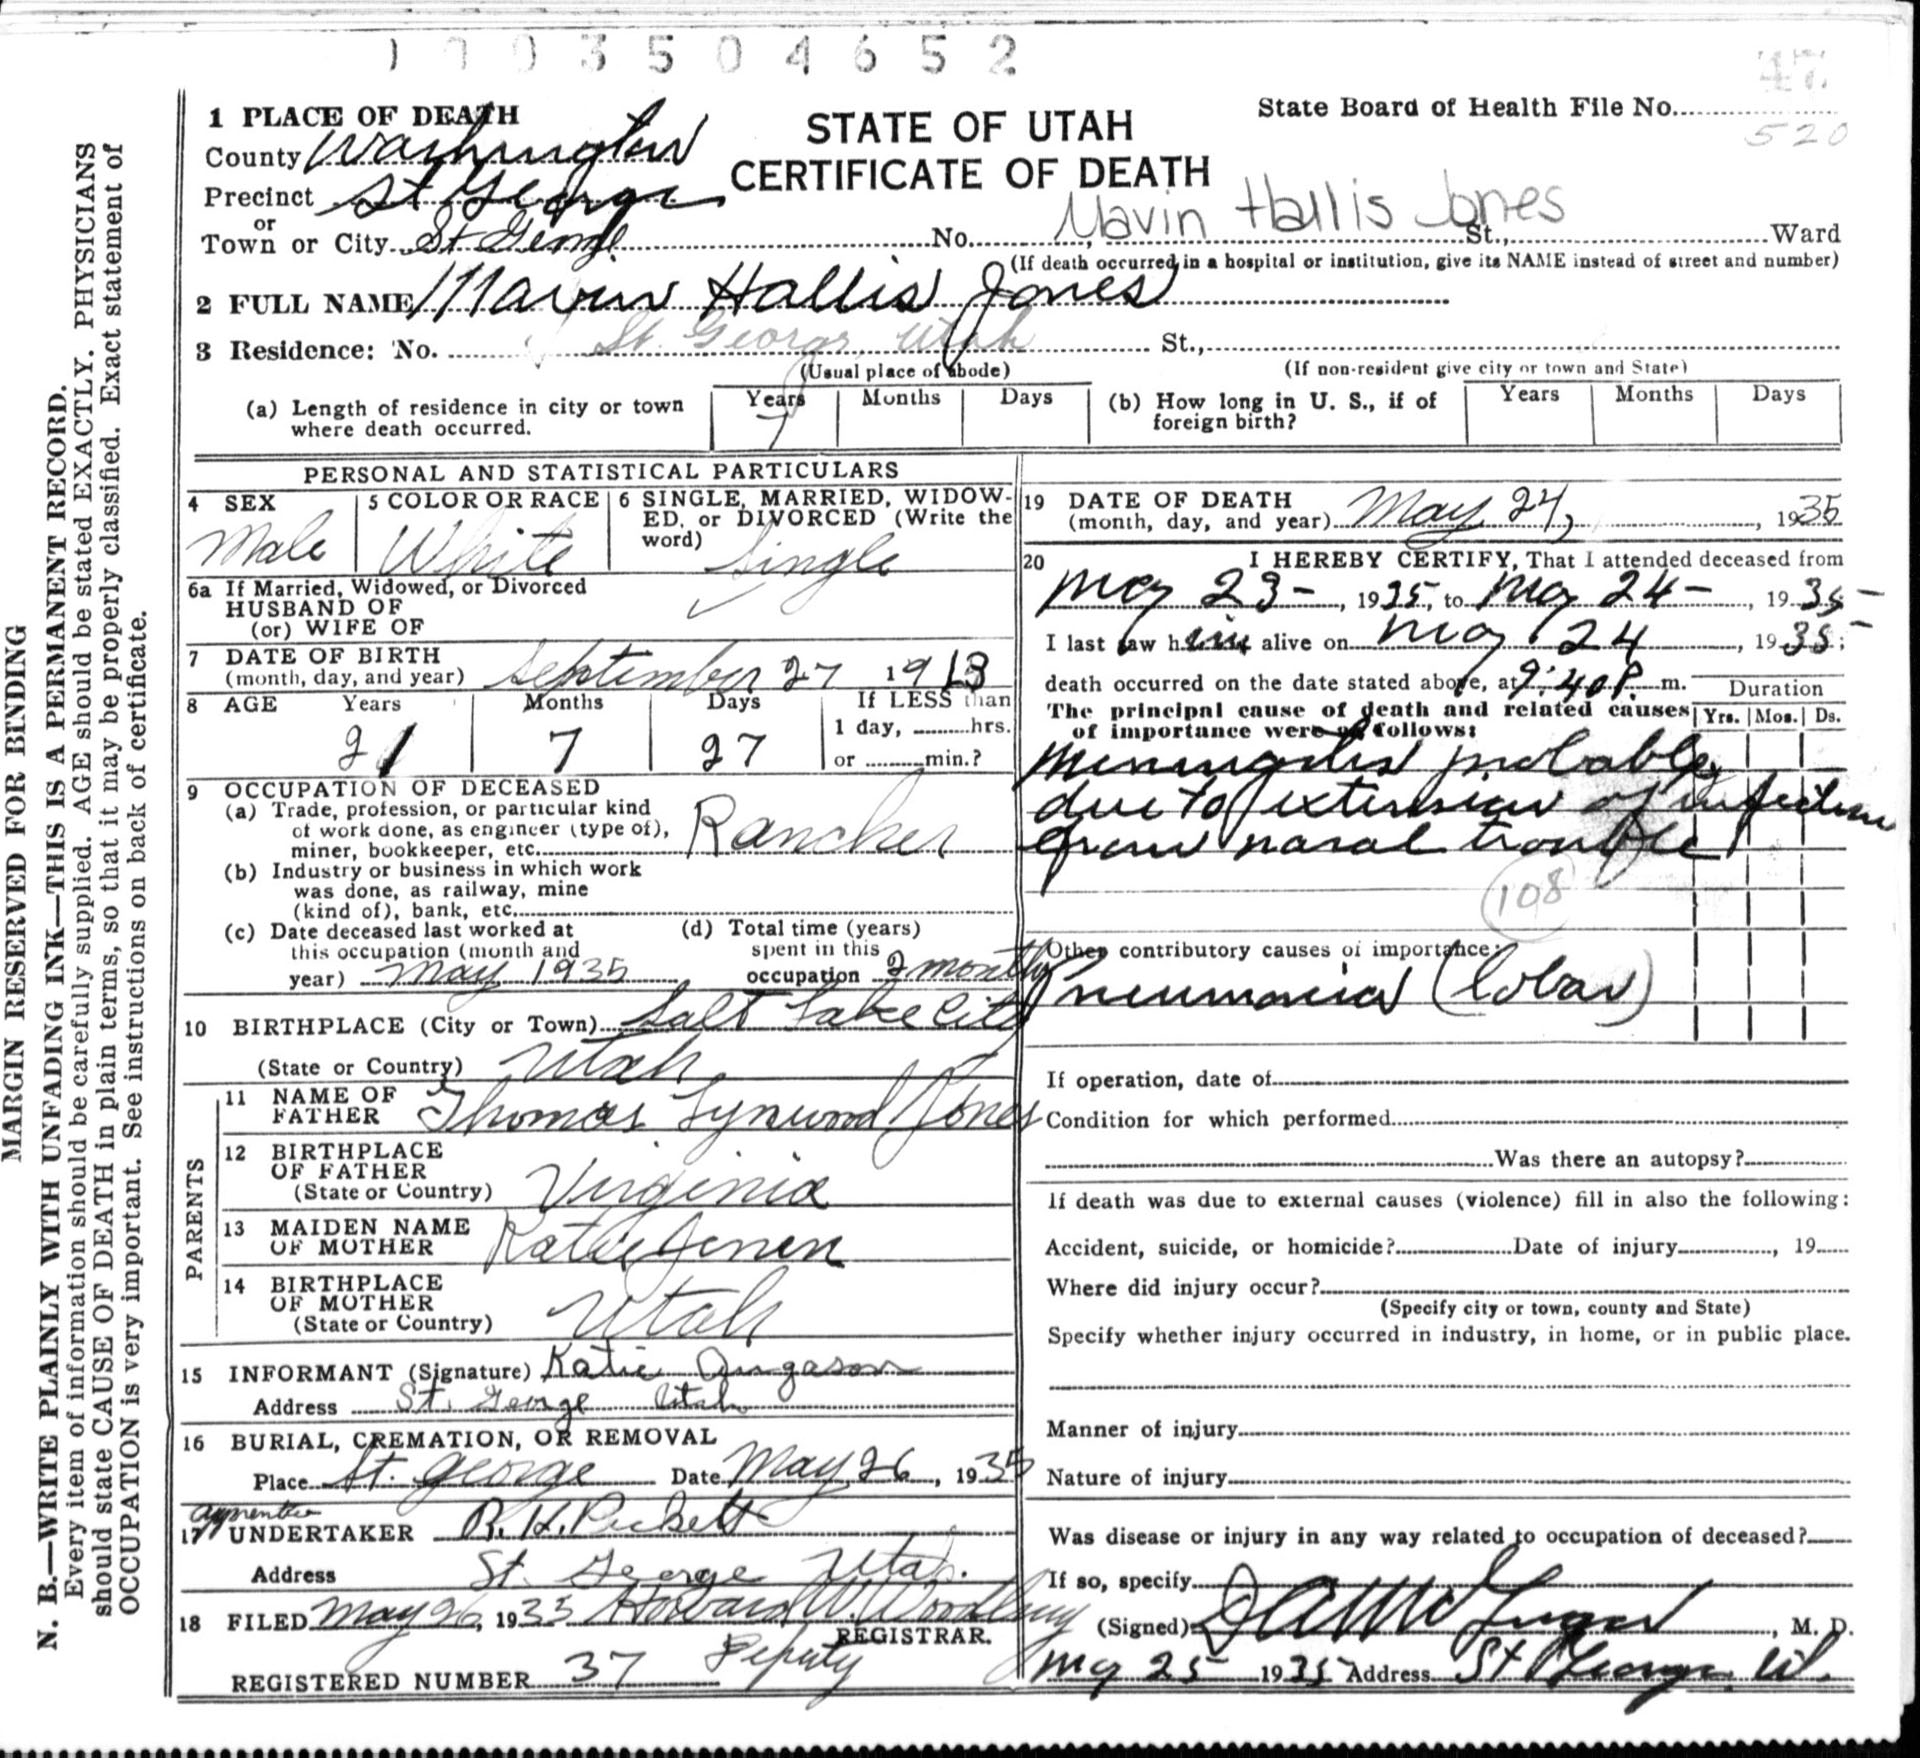 1003504652
47
1 PLACE OF DEATH
STATE OF UTAH
CERTIFICATE OF DEATH
State Board of Health File No.
520
County Washington
Precinct St George
or
Town or City St George No. St., Ward
Mavin Hallis Jones
(If death occurred in a hospital or institution, give its NAME instead of street and number)
2 FULL NAME Mavin Hallis Jones
3 Residence: No. St. George, Utah St.,
(Usual place of abode) (If non-resident give city or town and State)
(a) Length of residence in city or town where death occurred. Years 7 Months Days
(b) How long in U. S., if of foreign birth? Years Months Days
PERSONAL AND STATISTICAL PARTICULARS
4 SEX Male
5 COLOR OR RACE White
6 SINGLE, MARRIED, WIDOW-
ED, or DIVORCED (Write the
word) Single
6a If Married, Widowed, or Divorced
HUSBAND OF
(or) WIFE OF
7 DATE OF BIRTH
(month, day, and year) September 27 1913
8 AGE Years Months Days If LESS than
21 7 27 1 day, hrs.
or min.?
9 OCCUPATION OF DECEASED
(a) Trade, profession, or particular kind
of work done, as engineer (type of),
miner, bookkeeper, etc. Rancher
(b) Industry or business in which work
was done, as railway, mine
(kind of), bank, etc.
(c) Date deceased last worked at
this occupation (month and
year) May 1935
(d) Total time (years)
spent in this
occupation 2 months
10 BIRTHPLACE (City or Town) Salt Lake City
(State or Country) Utah
PARENTS
11 NAME OF
FATHER Thomas Lynwood Jones
12 BIRTHPLACE
OF FATHER
(State or Country) Virginia
13 MAIDEN NAME
OF MOTHER Katie Jensen
14 BIRTHPLACE
OF MOTHER
(State or Country) Utah
15 INFORMANT (Signature) Katie Angason
Address St. George Utah
16 BURIAL, CREMATION, OR REMOVAL
Place St. George Date May 26, 1935
apprentice
17 UNDERTAKER R. H. Pickett
Address St. George Utah.
18 FILED May 26, 1935 Howard W. Woodbury
REGISTRAR.
REGISTERED NUMBER 37 Deputy
19 DATE OF DEATH
(month, day, and year) May 24, 1935
20 I HEREBY CERTIFY, That I attended deceased from
May 23-, 1935, to May 24-, 1935-
I last saw him alive on May 24, 1935;
death occurred on the date stated above, at 9:40 P. m.
The principal cause of death and related causes
of importance were as follows:
Duration
Yrs. Mos. Ds.
Meningitis probably
due to extension of infection
from nasal trouble
108
Other contributory causes of importance:
Pneumonia (lobar)
If operation, date of
Condition for which performed
Was there an autopsy?
If death was due to external causes (violence) fill in also the following:
Accident, suicide, or homicide? Date of injury, 19
Where did injury occur?
(Specify city or town, county and State)
Specify whether injury occurred in industry, in home, or in public place.
Manner of injury
Nature of injury
Was disease or injury in any way related to occupation of deceased?
If so, specify
(Signed), M. D.
May 25 1935 Address St George Ut.
MARGIN RESERVED FOR BINDING
N. B.—WRITE PLAINLY WITH UNFADING INK—THIS IS A PERMANENT RECORD.
Every item of information should be carefully supplied. AGE should be stated EXACTLY. PHYSICIANS
should state CAUSE OF DEATH in plain terms, so that it may be properly classified. Exact statement of
OCCUPATION is very important. See instructions on back of certificate.